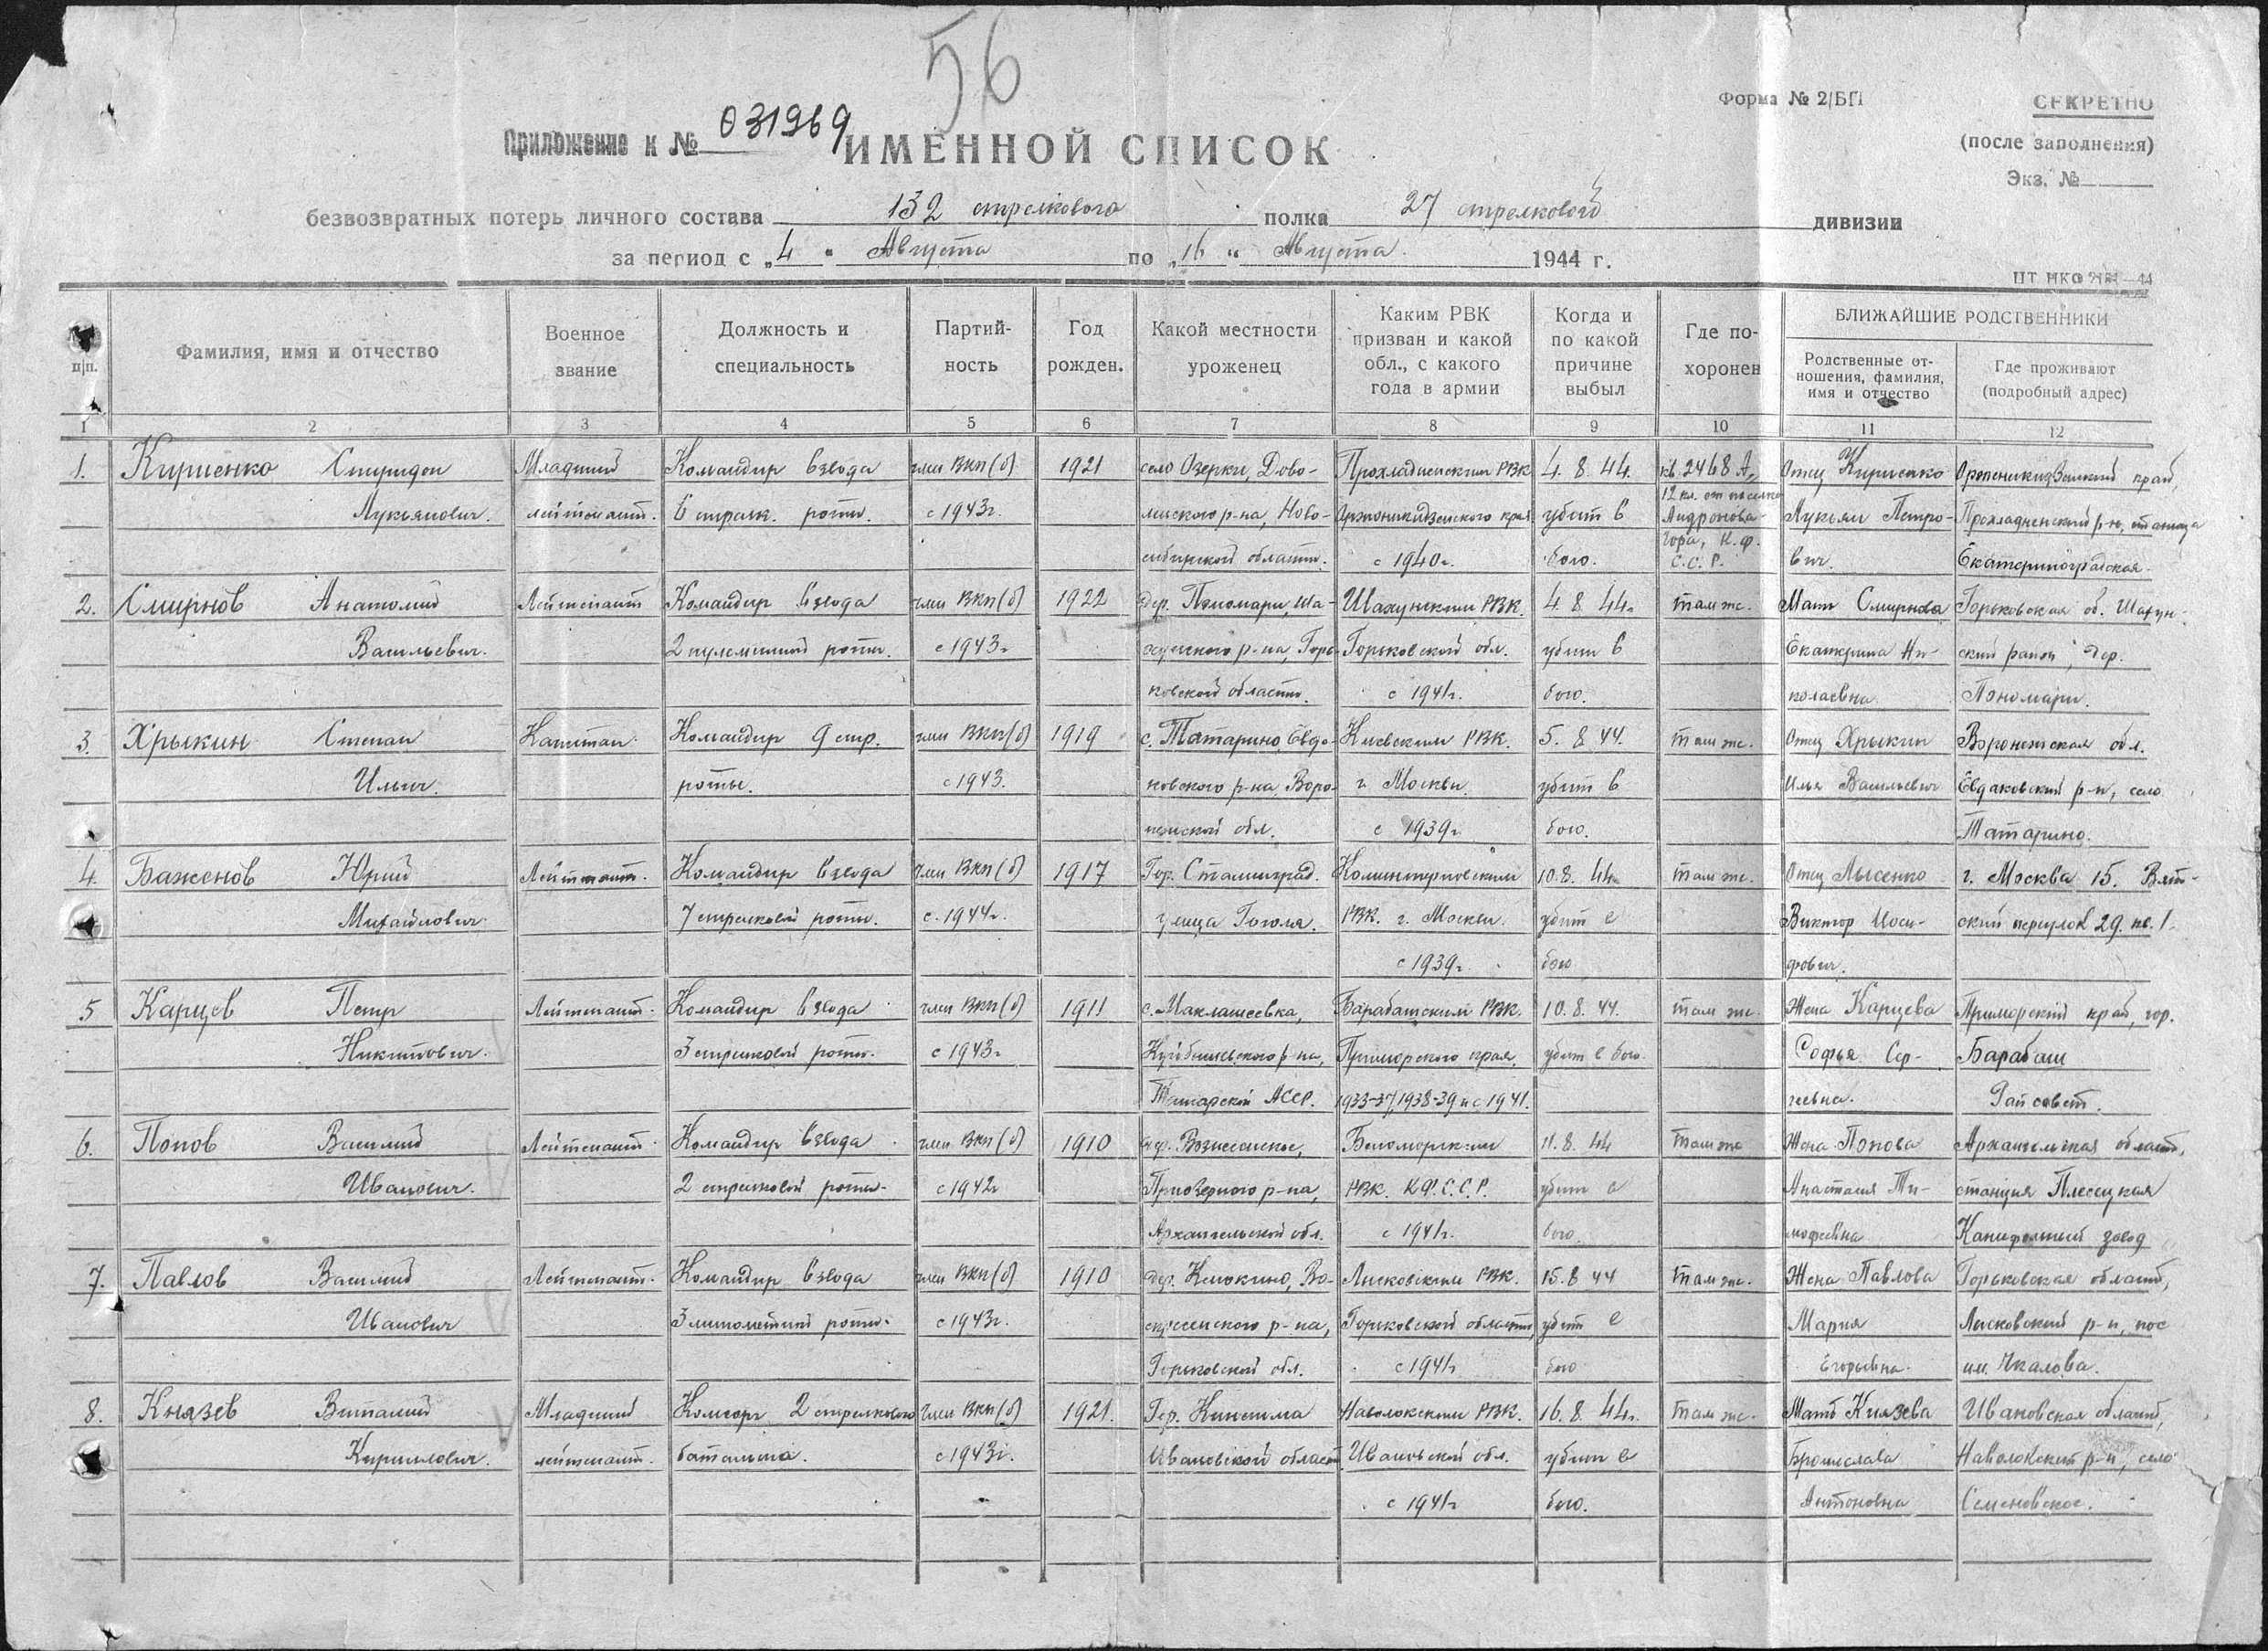 56
Форма № 2/БП
СЕКРЕТНО
(после заполнения)
Экз. №
Приложение к № 031969
ИМЕННОЙ СПИСОК
безвозвратных потерь личного состава 132 стрелкового полка 27 стрелковой дивизии
за период с „4" Августа по „16" Августа 1944 г.
п/п. Фамилия, имя и отчество Военное звание Должность и специальность Партий-ность Год рожден. Какой местности уроженец Каким РВК призван и какой обл., с какого года в армии Когда и по какой причине выбыл Где по-хоронен БЛИЖАЙШИЕ РОДСТВЕННИКИ
Родственные от-ношения, фамилия, имя и отчество Где проживают (подробный адрес)
1 2 3 4 5 6 7 8 9 10 11 12
1. Кириенко Спиридон Младший Командир взвода член ВКП(б) 1921 село Озерки, Дово- Прохладненским РВК 4.8.44. кв. 2468 А, Отец Кириенко Орджоникидзевский край,
12 км. от поселка
Лукьянович. лейтенант. 6 стрелк. роты. с 1943г. ленского р-на, Ново- Орджоникидзевского края убит в Андронова Лукьян Петро- Прохладненский р-н, станица
Гора, К.Ф.
сибирской области. с 1940г. бою. С.С.Р. вич. Екатериноградская.
2. Смирнов Анатолий Лейтенант Командир взвода член ВКП(б) 1922 дер. Пономари, Ша- Шахунским РВК. 4.8.44г. там же. Мать Смирнова Горьковская об. Шахун-
Васильевич. 2 пулеметной роты. с 1943г. хунского р-на, Горь- Горьковской обл. убит в Екатерина Ни- ский район, дер.
ковской области. с 1941г. бою. колаевна Пономари.
3. Хрыкин Степан Капитан Командир 9 стр. член ВКП(б) 1919 с. Татарино, Евда- Киевским РВК. 5.8.44. там же. Отец Хрыкин Воронежская обл.
Ильич. роты. с 1943. ковского р-на, Воро- г. Москвы. убит в Илья Васильевич Евдаковский р-н, село
нежской обл. с 1939г. бою. Татарино.
4. Баженов Юрий Лейтенант. Командир взвода член ВКП(б) 1917 Гор. Сталинград. Коминтерновским 10.8.44г. там же. Отец Лысенко г. Москва 15. Вят-
Михайлович. 7 стрелковой роты. с. 1944г. улица Гоголя. РВК. г. Москвы. убит в Виктор Иоси- ский переулок 29. кв. 1.
с 1939г. бою фович.
5 Карцев Петр Лейтенант. Командир взвода член ВКП(б) 1911 с. Маклашеевка, Барабашским РВК. 10.8.44. там же. Жена Карцева Приморский край, гор.
Никитович. 3 стрелковой роты. с 1943г. Куйбышевского р-на, Приморского края. убит в бою. Софья Сер- Барабаш
Татарской АССР. 1933-37, 1938-39 и с 1941. геевна. Райсовет.
6. Попов Василий Лейтенант. Командир взвода член ВКП(б) 1910 дер. Вознесенское, Беломорским 11.8.44 там же Жена Попова Архангельская область,
Иванович. 2 стрелковой роты. с 1942г Приозерного р-на, РВК. К.Ф.С.С.Р. убит в Анастасия Ти- станция Плесецкая
Архангельской обл. с 1941г. бою. мофеевна Канифольный завод
7. Павлов Василий Лейтенант. Командир взвода член ВКП(б) 1910 дер. Клюкино, Во- Лысковским РВК. 15.8.44 там же. Жена Павлова Горьковская область,
Иванович 3 минометной роты. с 1943г. скресенского р-на, Горьковской области, убит в Мария Лысковский р-н, пос
Горьковской обл. с 1941г бою Егорьевна. им. Чкалова.
8. Князев Виталий Младший Комсорг 2 стрелкового член ВКП(б) 1921. Гор. Кинешма Наволокским РВК. 16.8.44г. там же. Мать Князева Ивановская область,
Кириллович. лейтенант. батальона. с 1943г. Ивановской област. Ивановской обл. убит в Бронислава Наволокский р-н, село
с 1941г бою. Антоновна Семеновское.